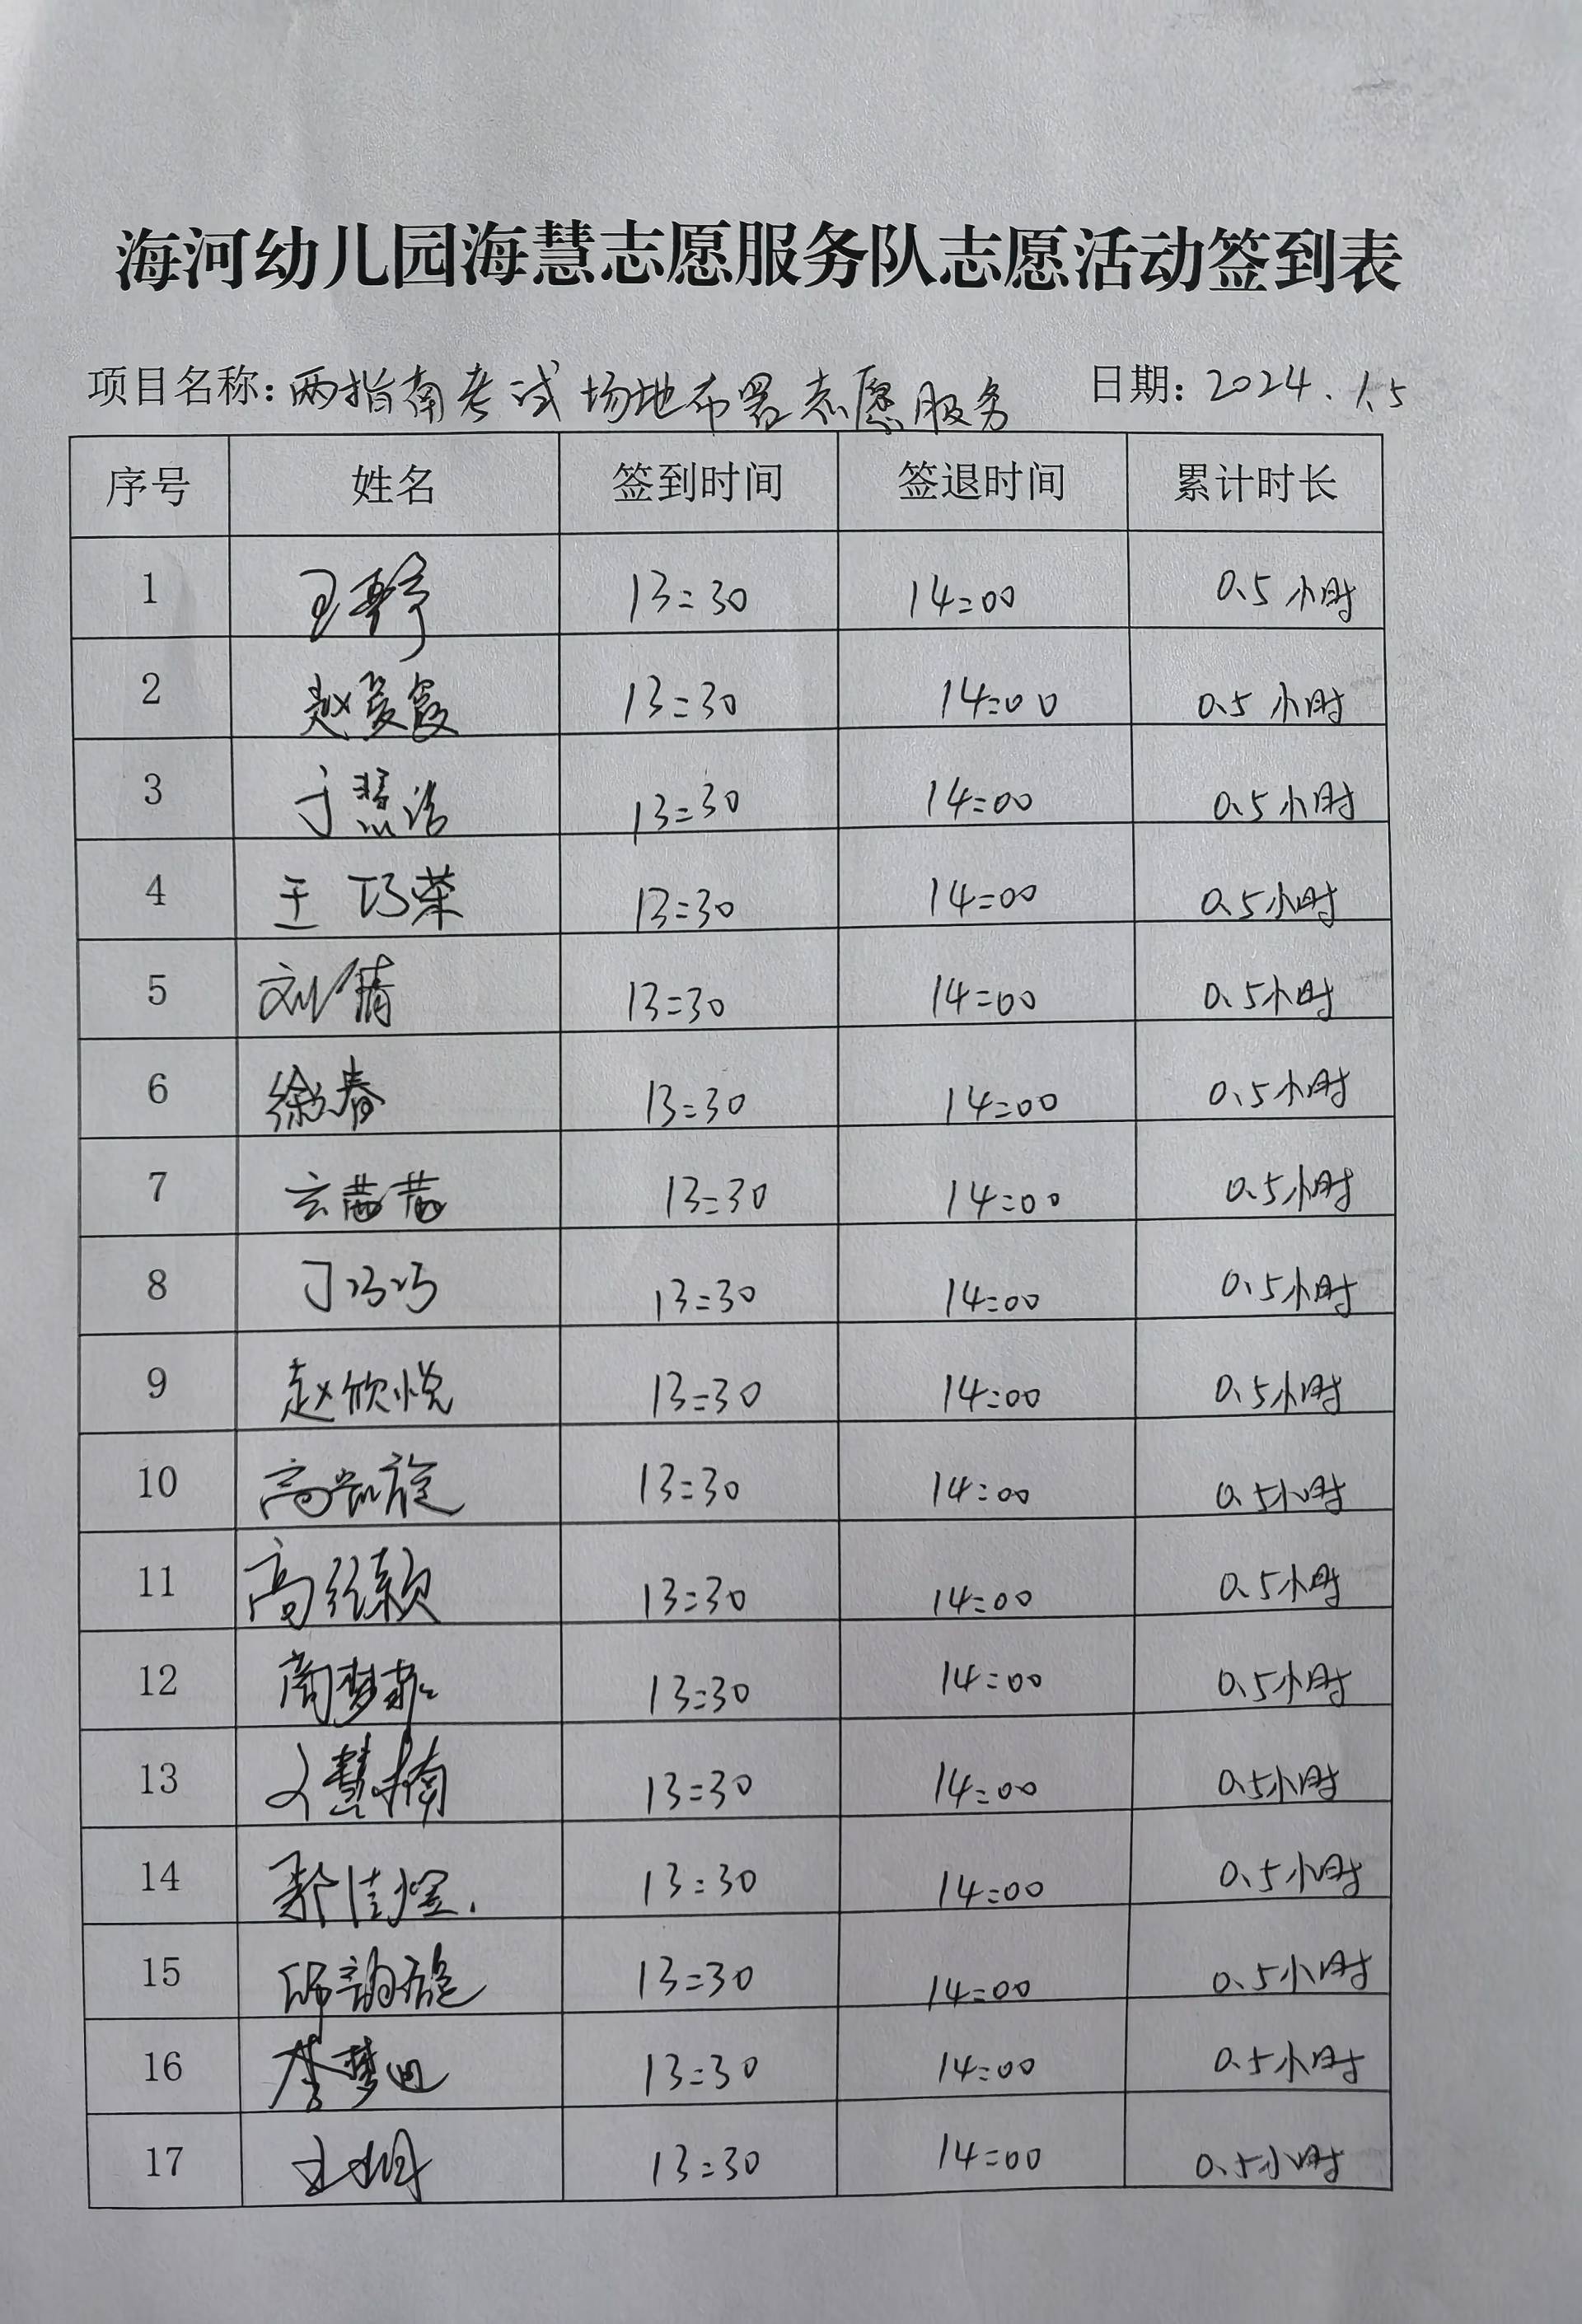 海河幼儿园海慧志愿服务队志愿活动签到表
项目名称：两指南考试场地布署志愿服务 日期：2024.1.5
序号 姓名 签到时间 签退时间 累计时长
1 王野 13:30 14:00 0.5小时
2 赵爱霞 13:30 14:00 0.5小时
3 于慧洁 13:30 14:00 0.5小时
4 王巧荣 13:30 14:00 0.5小时
5 刘倩 13:30 14:00 0.5小时
6 徐春 13:30 14:00 0.5小时
7 云茜茜 13:30 14:00 0.5小时
8 丁巧巧 13:30 14:00 0.5小时
9 赵欣悦 13:30 14:00 0.5小时
10 高凯旋 13:30 14:00 0.5小时
11 高红颖 13:30 14:00 0.5小时
12 周梦 13:30 14:00 0.5小时
13 文慧楠 13:30 14:00 0.5小时
14 郭佳煜 13:30 14:00 0.5小时
15 邱韵旋 13:30 14:00 0.5小时
16 李梦迪 13:30 14:00 0.5小时
17 王姗 13:30 14:00 0.5小时